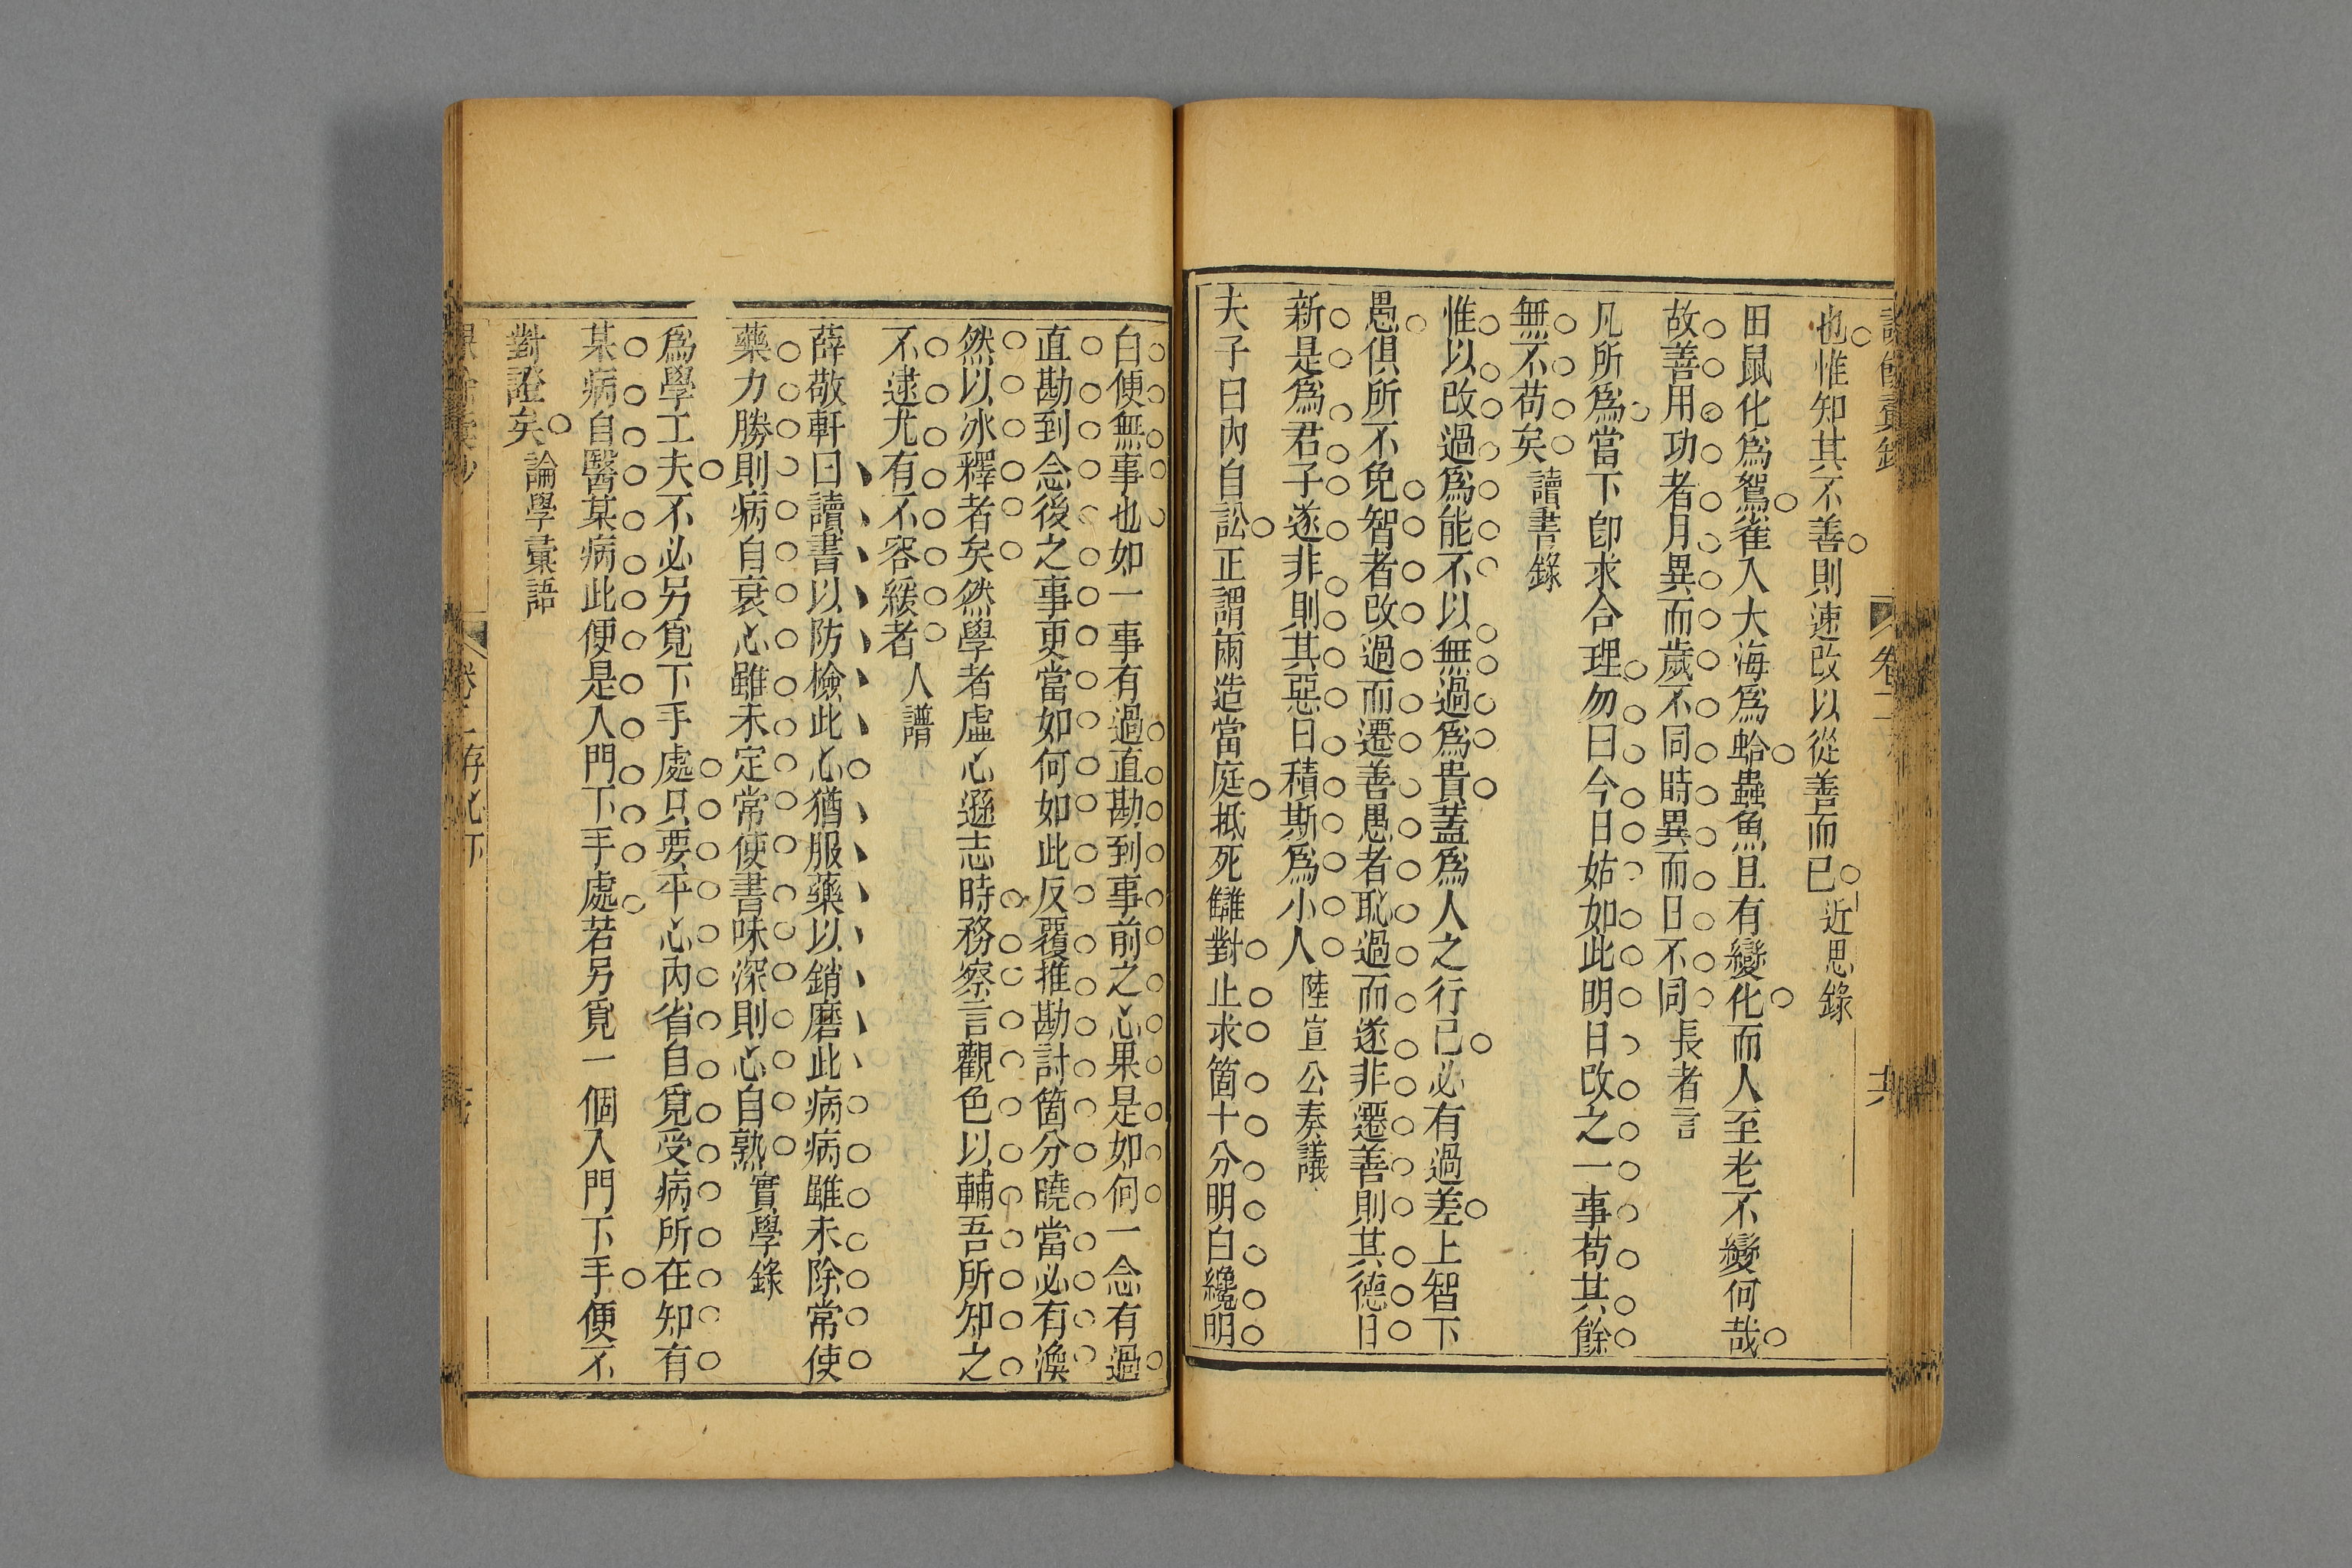 卷二
也惟知其不善則速改以從善而已近思錄
田鼠化爲鴽雀入大海爲蛤蟲魚且有變化而人至老不變何哉
故善用功者月異而歲不同時異而日不同長者言
凡所爲當下卽求合理勿曰今日姑如此明日改之一事苟其餘
無不苟矣讀書錄
惟以改過爲能不以無過爲貴蓋爲人之行己必有過差上智下
愚俱所不免智者改過而遷善愚者恥過而遂非遷善則其德日
新是爲君子遂非則其惡日積斯爲小人陸宣公奏議
夫子曰內自訟正謂兩造當庭抵死讎對止求箇十分明白纔明
白便無事也如一事有過直勘到事前之心果是如何一念有過
直勘到念後之事更當如何如此反覆推勘討箇分曉當必有渙
然以冰釋者矣然學者虛心遜志時務察言觀色以輔吾所知之
不逮尤有不容緩者人譜
薛敬軒曰讀書以防檢此心猶服藥以銷磨此病病雖未除常使
藥力勝則病自衰心雖未定常使書味深則心自熟實學錄
爲學工夫不必另覓下手處只要平心內省自覓受病所在知有
某病自醫某病此便是入門下手處若另覓一個入門下手便不
對證矣論學彙語
卷二存心下